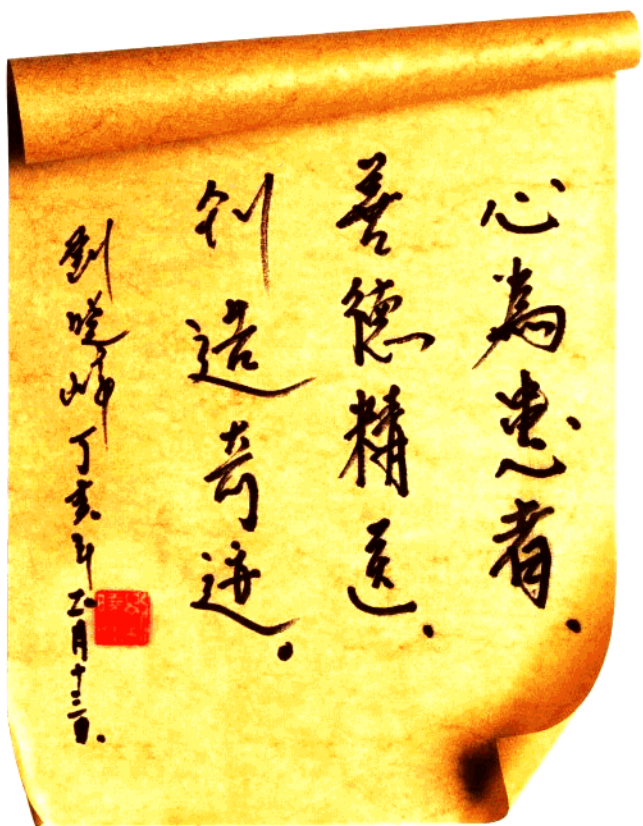 心為患者.
善德精進.
创造奇迹.
劉曉峰丁亥年正月十三日.